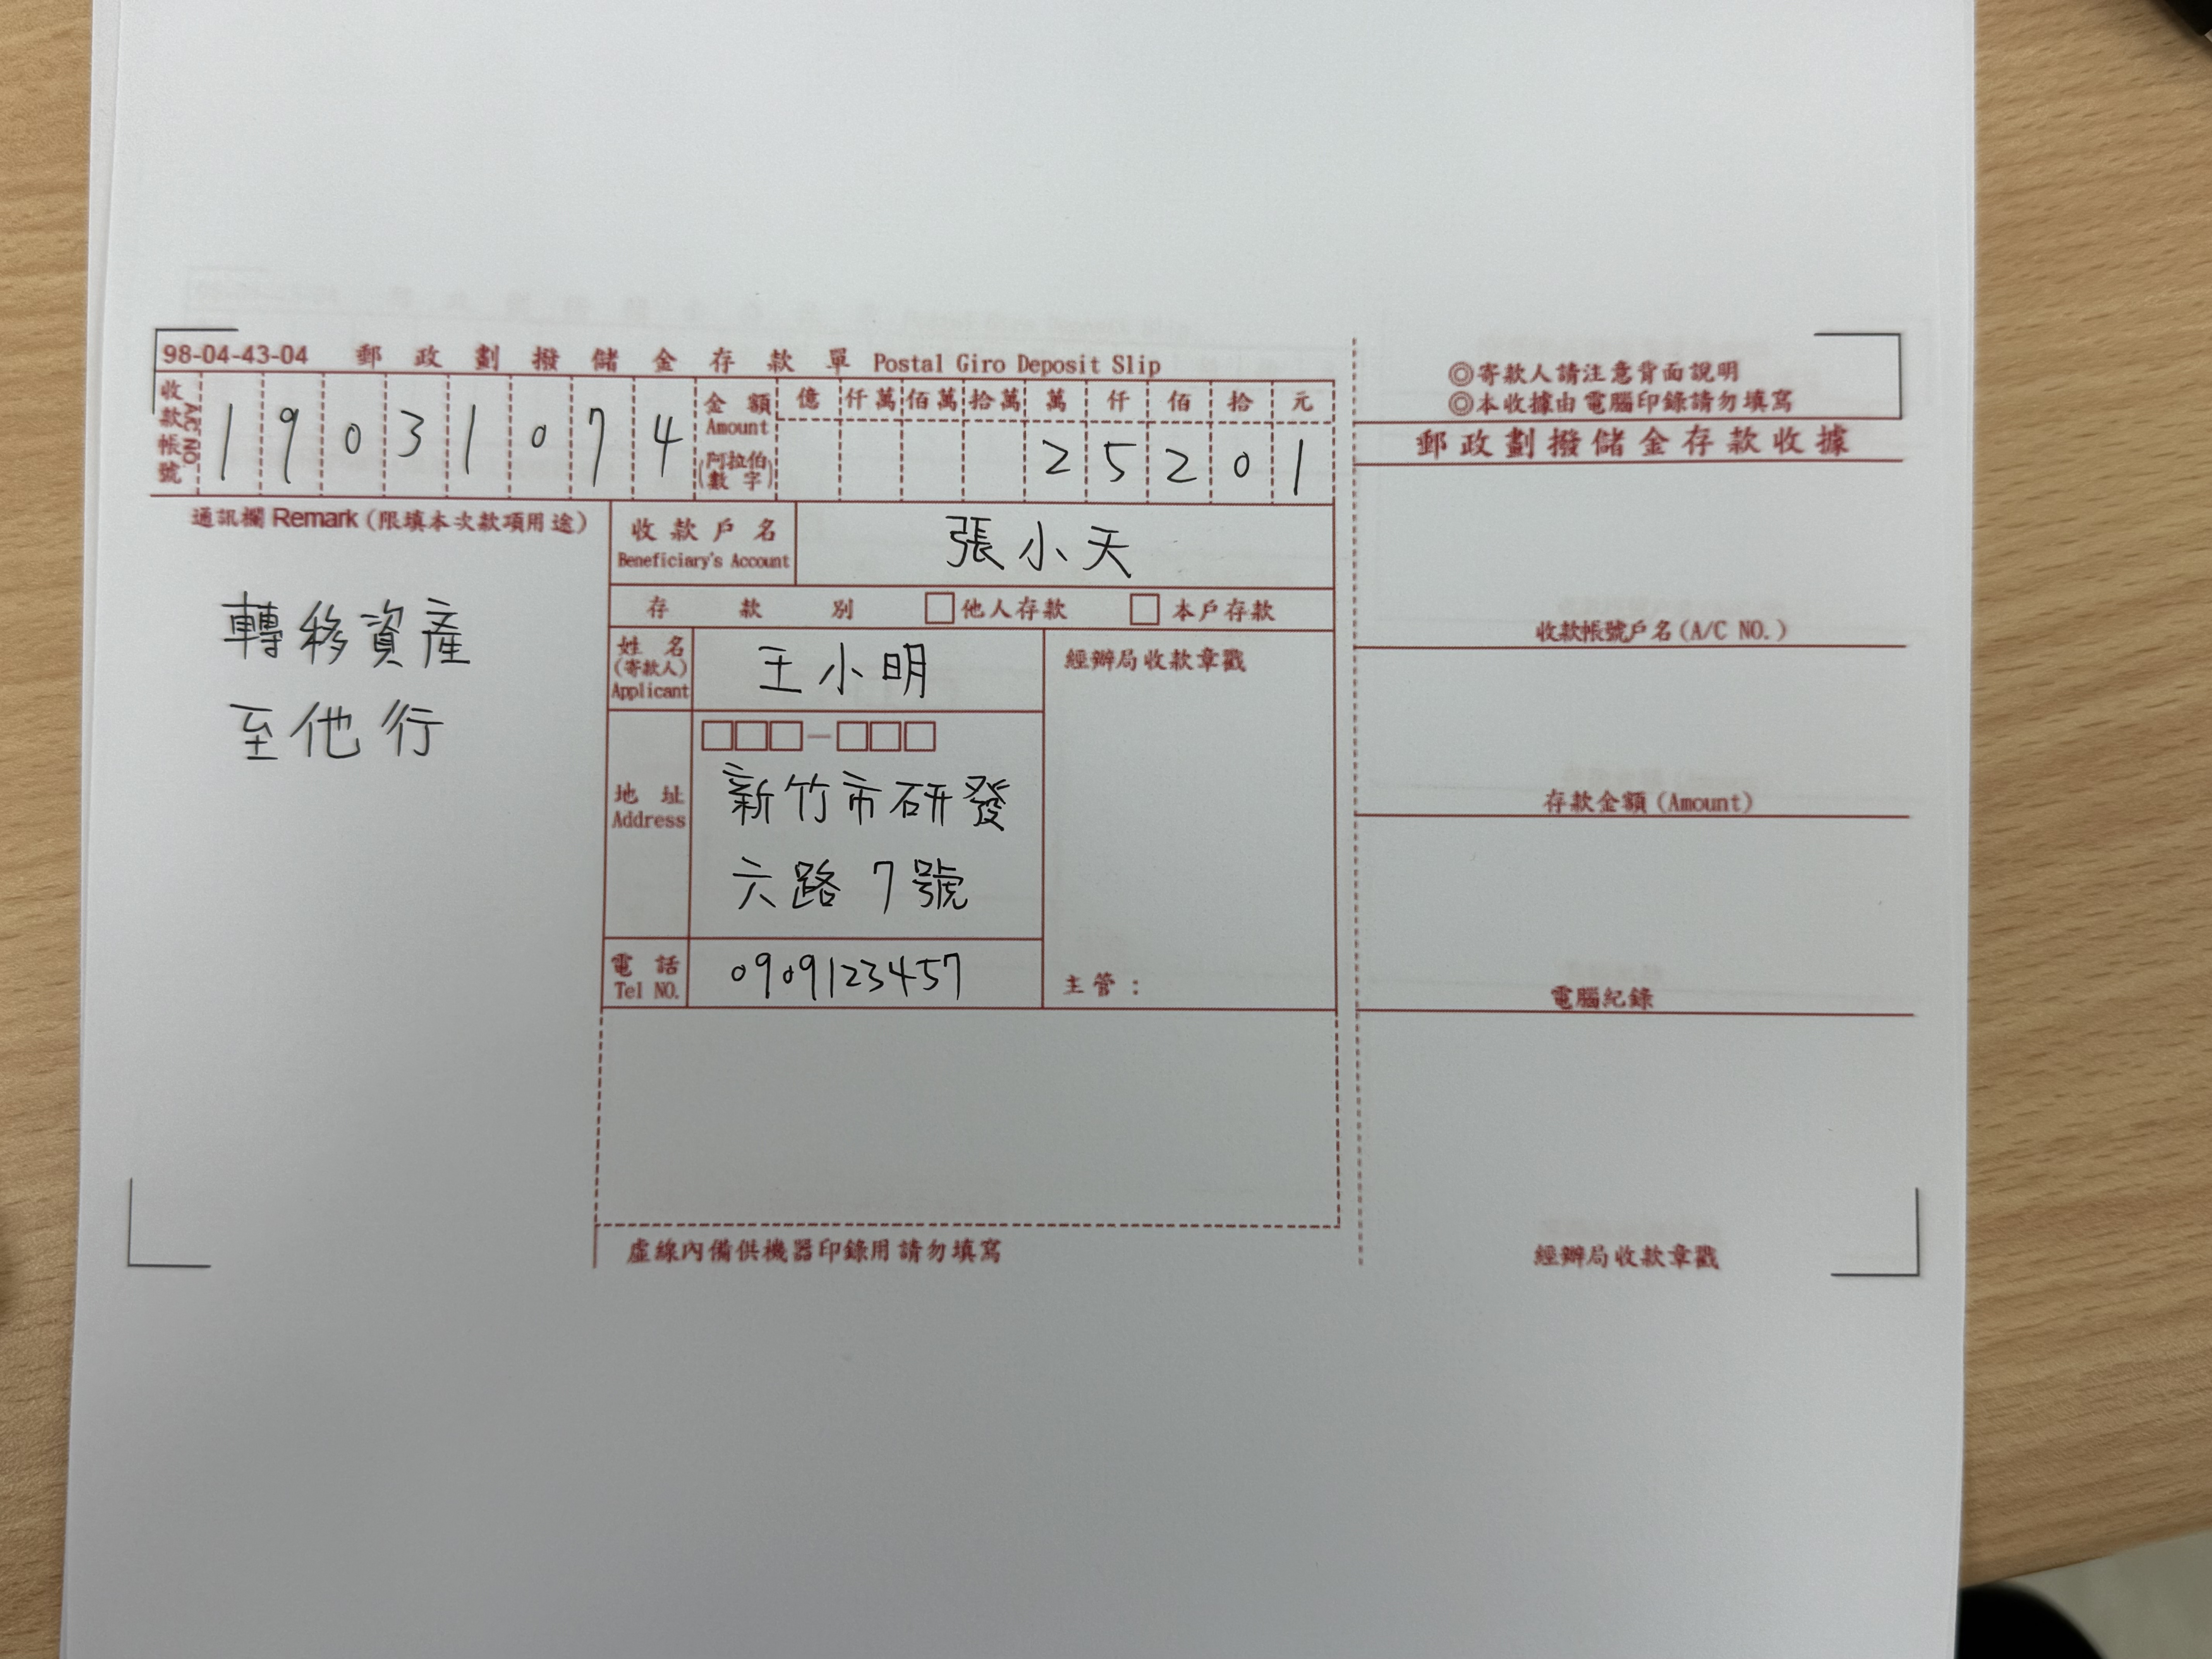 98-04-43-04 郵政劃撥儲金存款單 Postal Giro Deposit Slip
收款帳號 A/C NO. 1 9 0 3 1 0 7 4
金額 Amount (阿拉伯數字)
億 仟萬 佰萬 拾萬 萬 仟 佰 拾 元
2 5 2 0 1
通訊欄 Remark (限填本次款項用途)
轉移資產
至他行
收款戶名
Beneficiary's Account
張小天
存款別 □他人存款 □本戶存款
姓名
(寄款人)
Applicant
王小明
地址
Address
□□□-□□□
新竹市研發
六路7號
電話
Tel NO.
0909123457
經辦局收款章戳
主管：
虛線內備供機器印錄用請勿填寫
◎寄款人請注意背面說明
◎本收據由電腦印錄請勿填寫
郵政劃撥儲金存款收據
收款帳號戶名(A/C NO.)
存款金額(Amount)
電腦紀錄
經辦局收款章戳